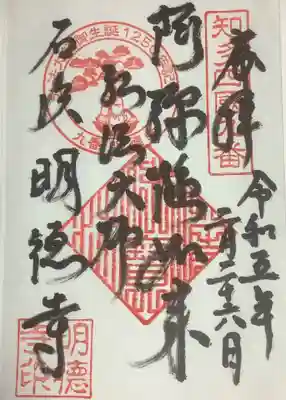 奉拝
知多四国九番
令和五年
二月二十六日
阿彌陀如来
弘法大師
生誕1250年記
九番
石浜 明徳寺
明徳寺印